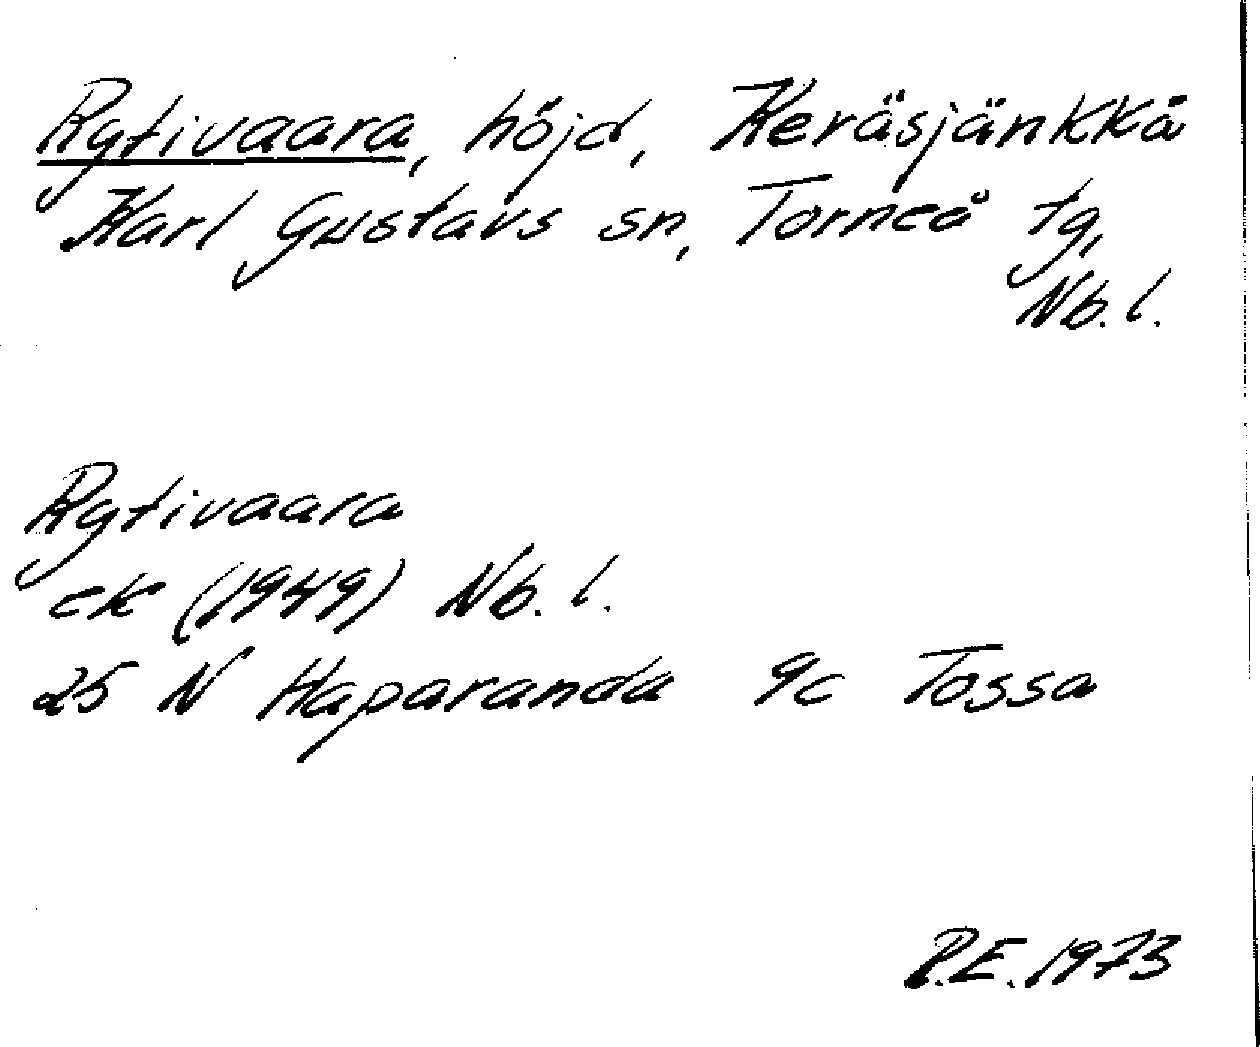 Rytivaara, höjd, Keräsjänkkä
Karl Gustavs sn, Torneå tg,
Nb. l.
Rytivaara
ek (1949) Nb. l.
25 N Haparanda 9c Tossa
P.E. 1973